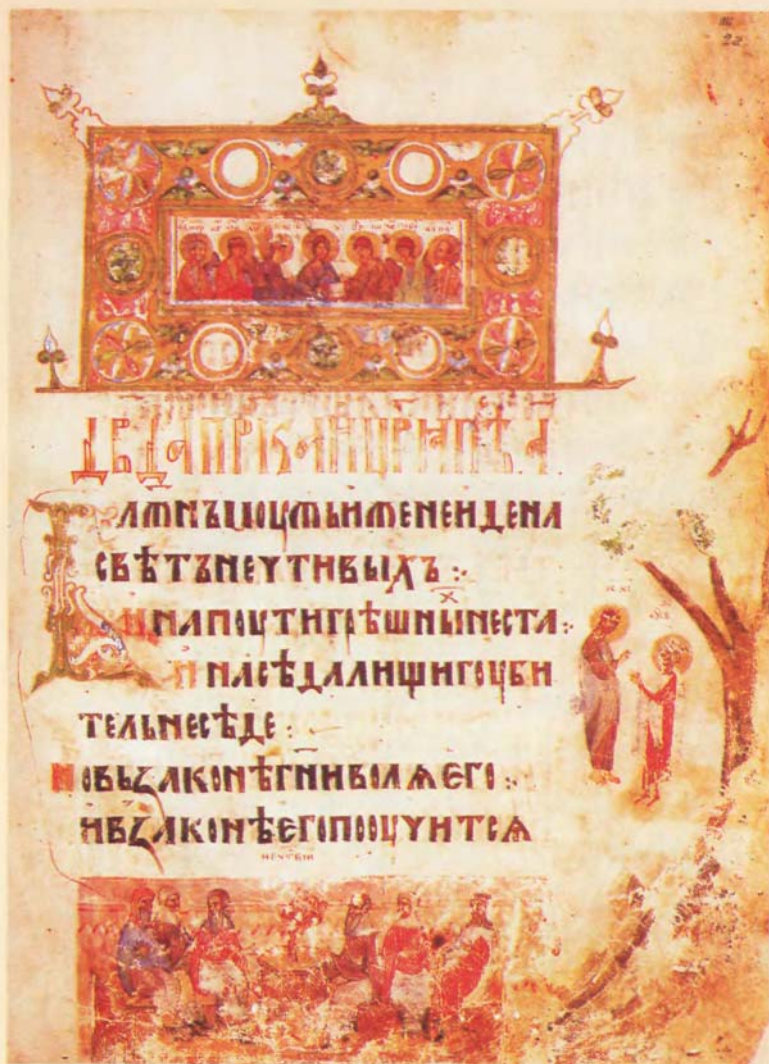 22
ДВДАПРКАИЦРѦПѢ А
БЛЖНЪМОУЖЬИЖЕНЕИДЕНА
СВѢТЪНЕЧТИВЫХЪ:
ИНАПОУТИГРѢШНЫⷯНЕСТА:
ИНАСѢДАЛИЩИГОУБИ
ТЕЛЬНЕСѢДЕ:
НОВЬЗАКОНѢГНИВОЛѦЕГО:
ИВЗАКОНѢЕГОПООУЧИТСѦ
IC XC